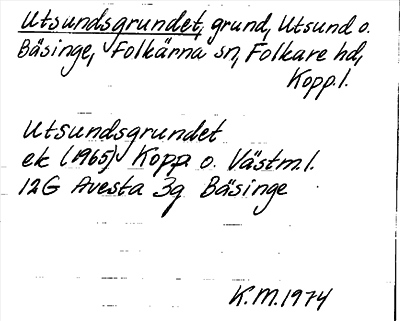 Utsundsgrundet, grund, Utsund o.
Bäsinge, Folkärna sn, Folkare hd,
Kopp.l.
Utsundsgrundet
ek (1965) Kopp. o. Västm.l.
12G Avesta 3g Bäsinge
K.M. 1974